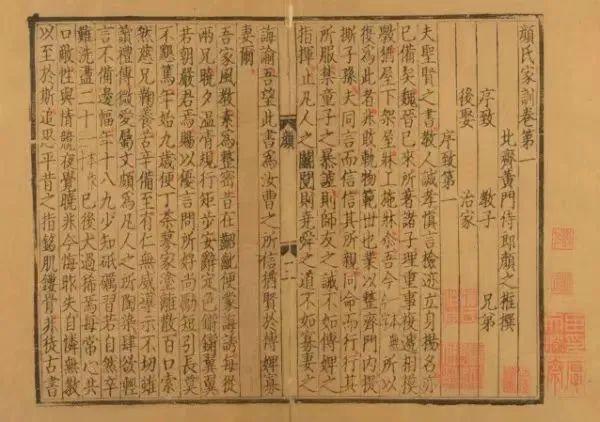 顔氏家訓卷第一
北齊黃門侍郎顔之推撰
序致 教子 兄弟
後娶 治家
序致第一
夫聖賢之書教人誠孝慎言檢迹立身揚名亦
已備矣魏晉已來所著諸子理重事複遞相模
斆猶屋下架屋牀上施牀爾吾今所以
復為此者非敢軌物範世也業以整齊門內提
撕子孫夫同言而信信其所親同命而行行其
所服禁童子之暴謔則師友之誡不如傅婢之
指揮止凡人之鬬鬩則堯舜之道不如寡妻之
顔
誨諭吾望此書為汝曹之所信猶賢於傅婢寡
妻爾
吾家風教素為整密昔在齠齔便蒙誨誘每從
兩兄曉夕温凊規行矩步安辭定色鏘鏘翼翼
若朝嚴君焉賜以優言問所好尚勵短引長莫
不懇篤年始九歲便丁荼蓼家塗離散百口索
然慈兄鞠養苦辛備至有仁無威導示不切雖
讀禮傳微愛屬文頗為凡人之所陶染肆欲輕
言不備邊幅年十八九少知砥礪習若自然卒
難洗盪二十已後大過稀焉每常心共
口敵性與情競夜覺曉非今悔昨失自憐無教
以至於斯追思平昔之指銘肌鏤骨非徒古書